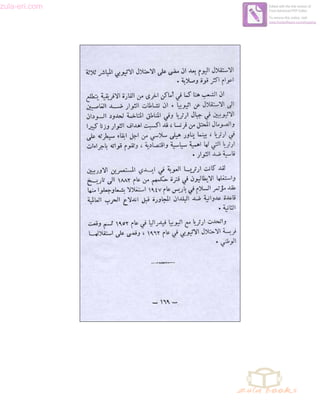 zula-eri.com
الاستقلال اليوم بعد ان مضى على الاحتلال الاثيوبي المباشر ثلاثة
اعوام اكثر قوة وصلابة .
ان الشعب هنا كما في أماكن اخرى من القارة الافريقية يتطلع
الى الاستقلال عن اثيوبيا ، ان نشاطات الثوار ضد الغاصبين
الاثيوبيين في جبال ارتريا وفي المناطق المتاخمة لحدود السودان
والصومال المحتل من فرنسا ، قد اكسبت اهداف الثوار وزنا كبيرا
في ارتريا ، بينما يناور هيلى سلاسي من اجل ابقاء سيطرته على
ارتريا التي لها اهمية سياسية واقتصادية ، وتقوم قواته باجراءات
قاسية ضد الثوار .
لقد كانت ارتريا العوبة في ايدي المستعمرين الاوربيين
واستغلها الايطاليون في فترة حكمهم من عام ١٨٨٢ الى تاريخ
عقد مؤتمر السلام في باريس عام ١٩٤٧ استغلالا بشعا وجعلوا منها
قاعدة عدوانية ضد البلدان المجاورة قبل اندلاع الحرب العالمية
الثانية .
واتحدت ارتريا مع اثيوبيا فيدراليا في عام ١٩٥٢ ثم وقعت
فريسة الاحتلال الاثيوبي في عام ١٩٦٢ ، وقضى على استقلالها
الوطني .
— ١٦٩ —
zula books